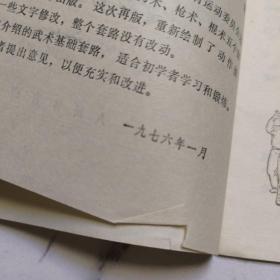 术、枪术、棍术五个
出版。这次再版，重新绘制了动作
一些文字修改，整个套路没有改动。
介绍的武术基础套路，适合初学者学习和锻炼。
者提出意见，以便充实和改进。
一九七六年一月